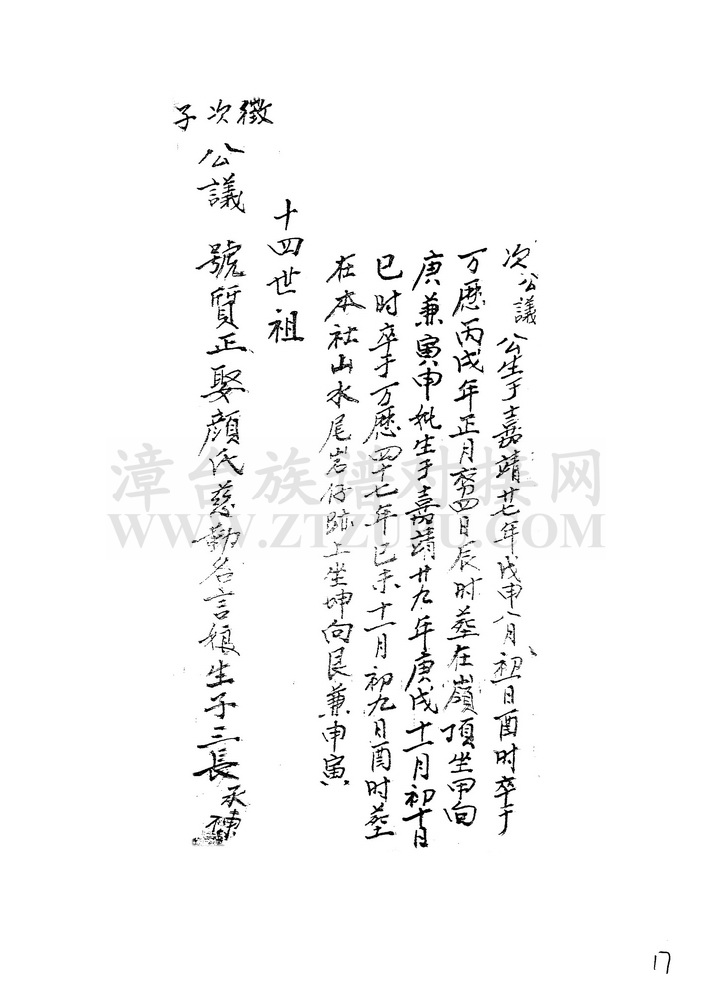 次公議公生于嘉靖廿七年戊申八月初一日酉时卒于
万歷丙戌年正月初四日辰时塟在嶺頂坐甲向
庚兼寅申妣生于嘉靖廿九年庚戌十一月初十日
巳时卒于万歷四十七年己未十一月初九日酉时塟
在本社山水尾岩仔跡上坐坤向艮兼申寅
十四世祖
徵次子
公議 號質正娶顏氏慈勤名言娘生子三長承
漳台族谱对接网
WWW.ZTZUPU.COM
17